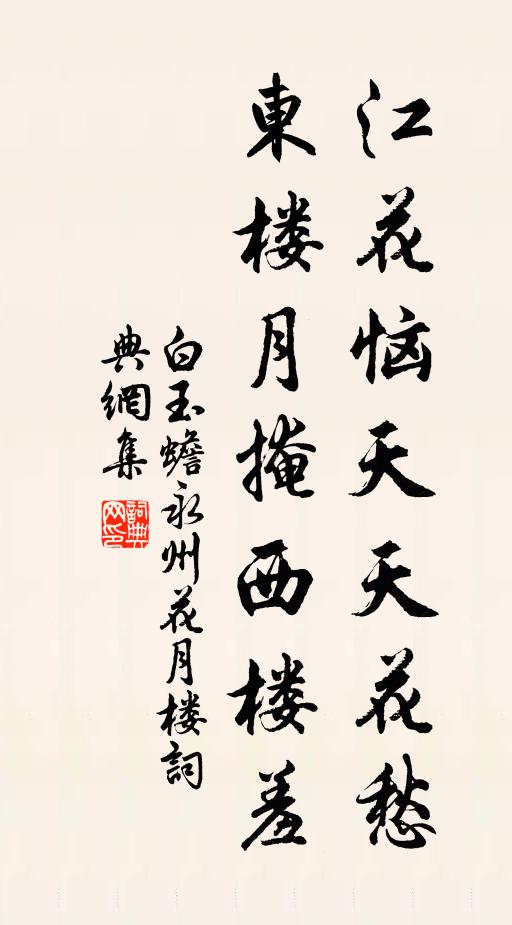 江花恼天天花愁
東楼月掩西楼羞
白玉蟾永州花月楼詞
典網集
詞典网印